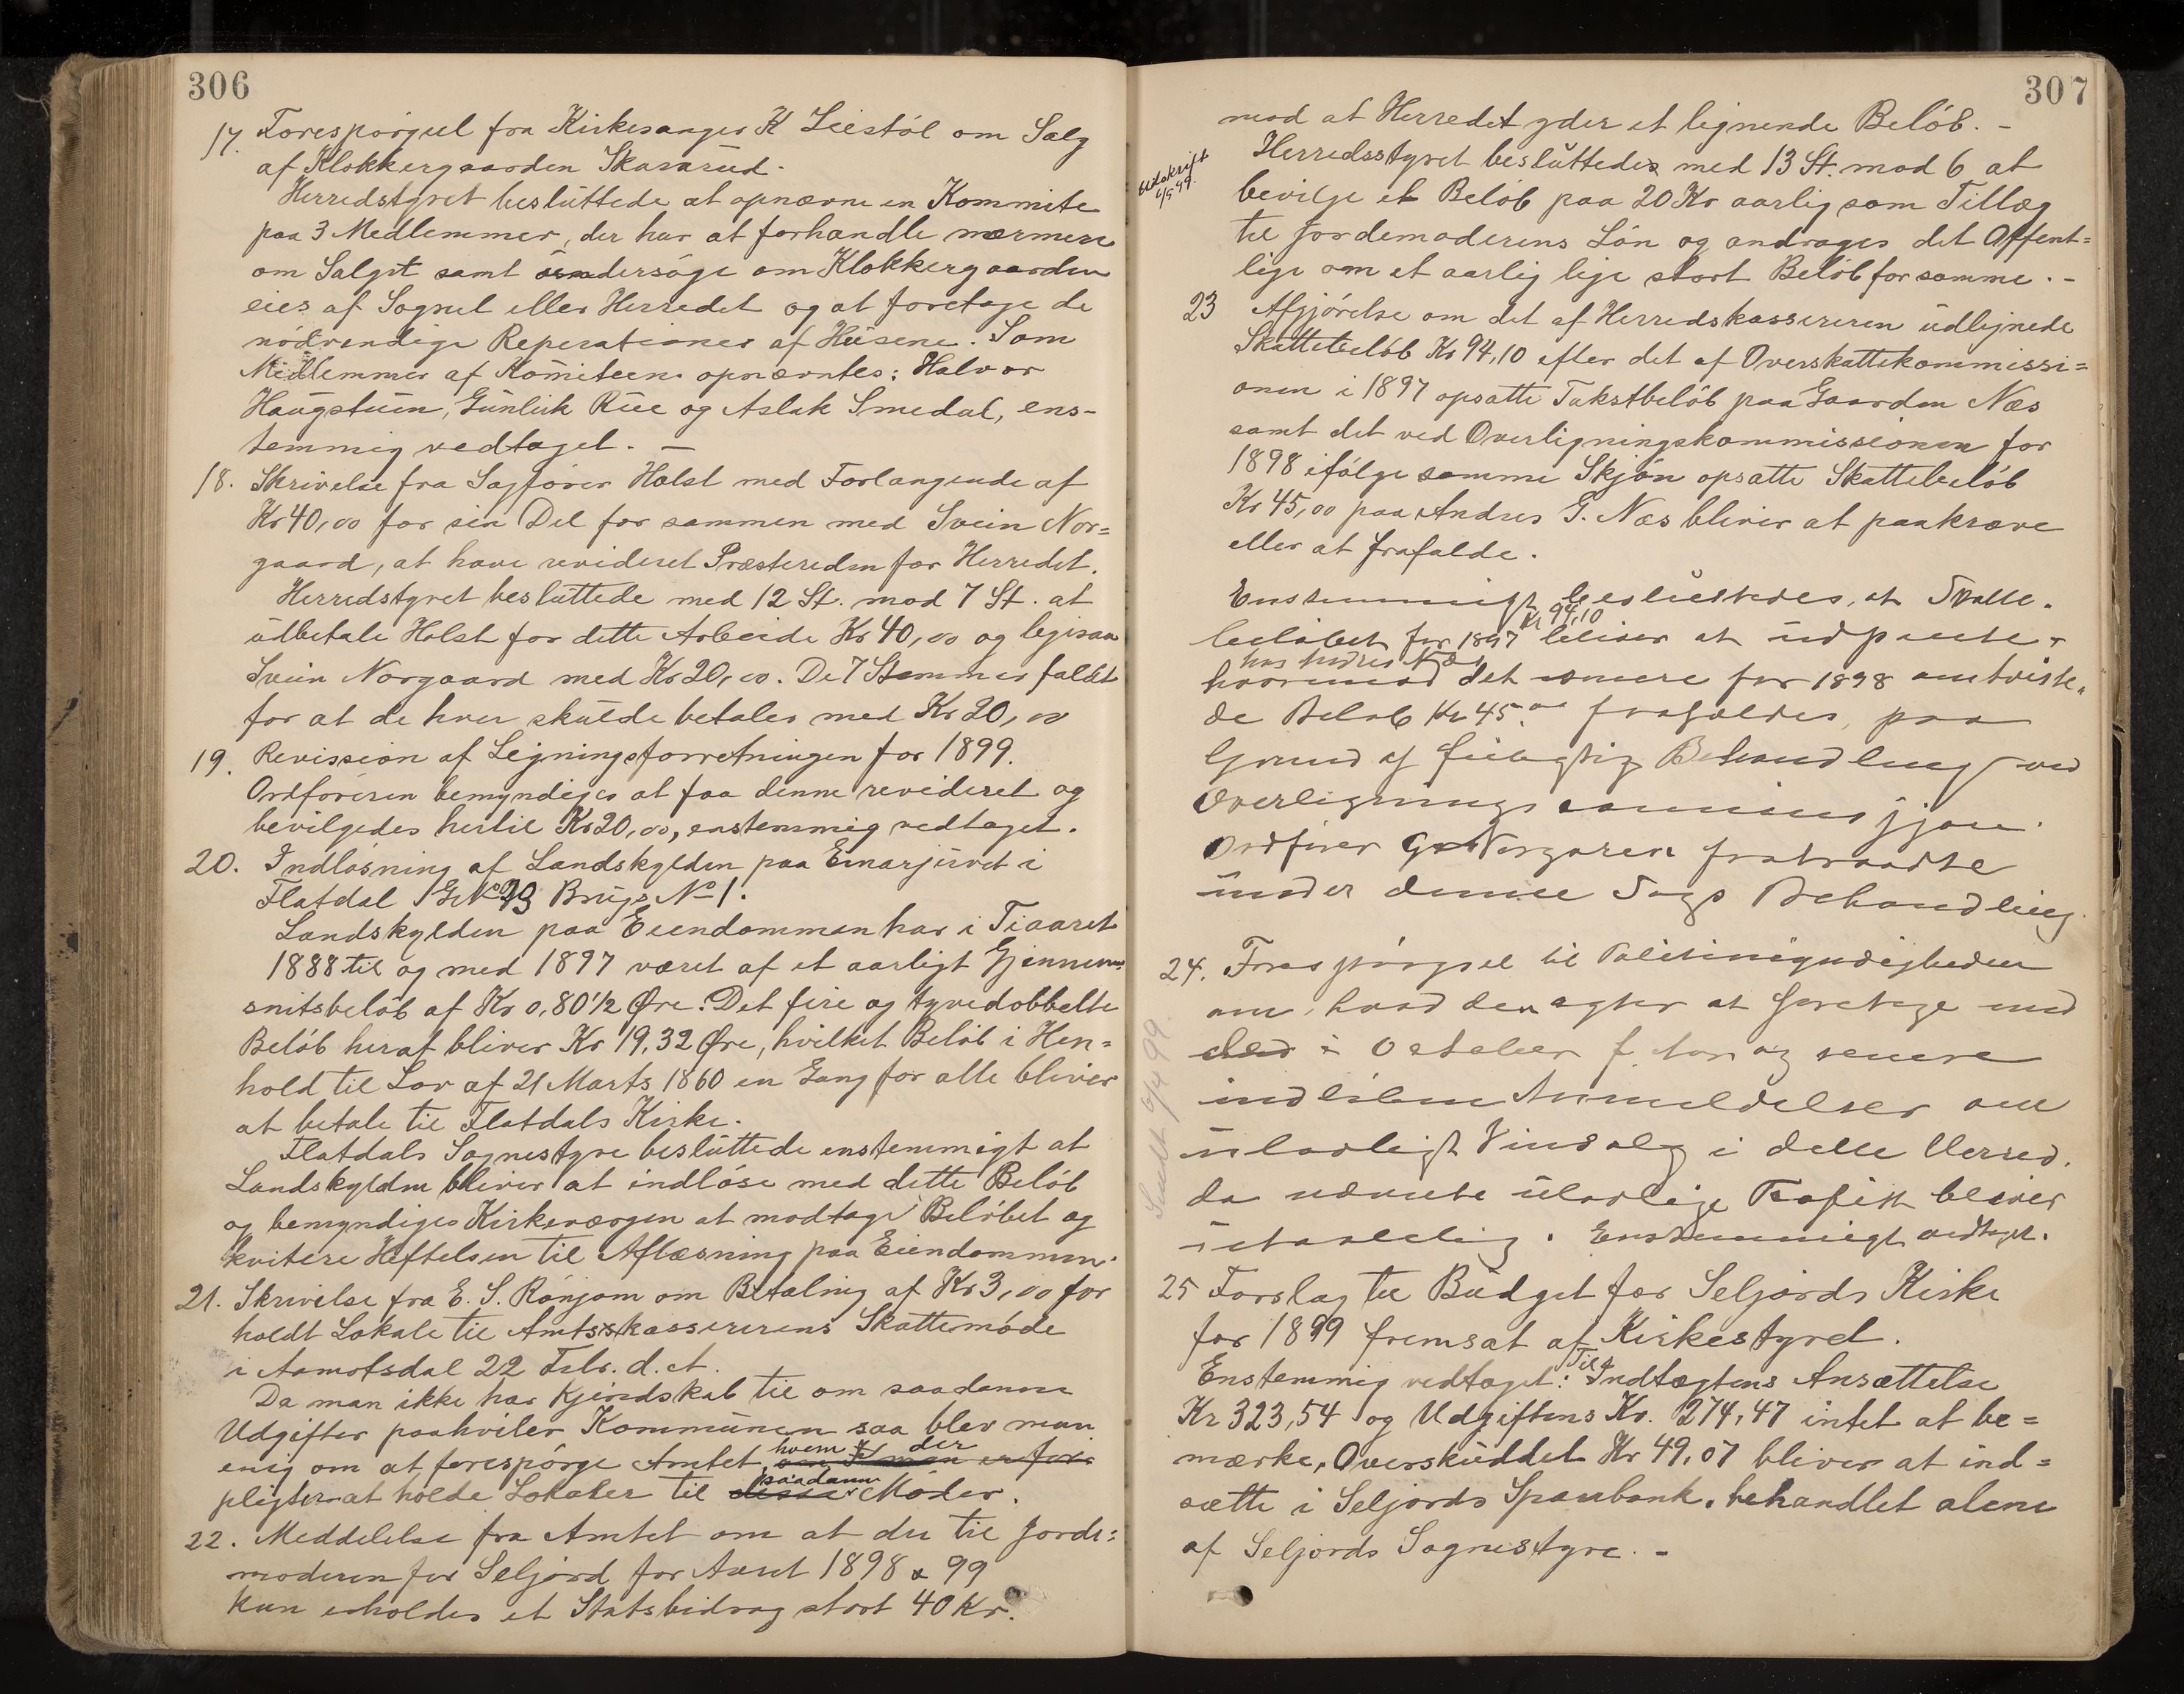 306
17. Forespørgsel fra Kirkesanger K Liestøl om Salg
af Klokkergaarden Skararud.
Herredstyret besluttede at opnævne en Kommite
paa 3 Medlemmer, der har at forhandle nærmere
om Salget samt undersøge om Klokkergaarden
eies af Sognet eller Herredet og at foretage de
nødvendige Reperationer af Husene. Som
Medlemmer af Komiteen opnævntes: Halvor
Haugstuen, Gunleik Rue og Aslak Smedal, ens-
temmig vedtaget. —
18. Skrivelse fra Sagfører Holst med Forlangende af
Kr 40,00 for sin Del for sammen med Svein Nor=
gaard, at have revideret Præstereden for Herredet.
Herredstyret besluttede med 12 St. mod 7 St. at
udbetale Holst for dette Arbeide Kr 40,00 og ligesaa
Svein Norgaard med Kr 20,00. De 7 Stemmer faldt
for at de hver skulde betales med Kr 20,00
19. Revission af Ligningsforretningen for 1899.
Ordføreren bemyndiges at faa denne revideret og
bevilgedes hertil Kr 20,00, enstemmig vedtaget.
20. Indløsning af Landskylden paa Einarjuvet i
Flatdal G No 93 Brugs No 1.
Landskylden paa Eiendommen har i Tiaaret
1888 til og med 1897 været af et aarligt Gjennem=
snitsbeløb af Kr 0,80 1/2 Øre. Det fire og tyvedobbelte
Beløb heraf bliver Kr 19,32 Øre, hvilket Beløb i Hen=
hold til Lov af 21 Marts 1860 en Gang for alle bliver
at betale til Flatdals Kirke.
Flatdals Sognestyre besluttede enstemmigt at
Landskylden bliver at indløse med dette Beløb
og bemyndiges Kirkeværgen at modtage Beløbet og
kvitere Heftelsen til Aflæsning paa Eiendommen.
21. Skrivelse fra E. S. Rønjom om Betaling af Kr 3,00 for
holdt Lokale til Amtskassererens Skattemøde
i Aamotsdal 22 Febr. d. A.
Da man ikke har Kjendskab til om saadanne
Udgifter paahviler Kommunen saa blev man
enig om at forespørge Amtet hvem der er for=
pligter at holde Lokaler til saadanne Møder.
22. Meddelelse fra Amtet om at der til Jorde=
moderen for Seljord for Aaret 1898 & 99
kun erholdes et Statsbidrag stort 40 Kr.
307
mod at Herredet yder et lignende Beløb. -
Udskrift
6/5 99.
Herredsstyret besluttedes med 13 St. mod 6 at
bevilge et Beløb paa 20 Kr aarlig som Tillæg
til Jordemoderens Løn og andrages det Offent=
lige om et aarlig lige stort Beløb for samme. -
23 Afgjørelse om det af Herredskassereren udlignede
Skattebeløb Kr 94,10 efter det af Overskattekommissi=
onen i 1897 opsatte Takstbeløb paa Gaarden Næs
samt det ved Overligningskommissionen for
1898 ifølge samme Skjøn opsatte Skattebeløb
Kr 45,00 paa Andres G. Næs bliver at paakræve
eller at frafalde.
Enstemmigt besluttedes, at Skatte-
beløbet for 1897 Kr 94,10 bliver at udpante
hos Andres Næs
hvorimod det samme for 1898 omtviste-
de Beløb Kr 45.00 frafaldes, paa
Grund af feilagtig Behandling ved
Overligningscommissjonen.
Ordfører G. Norgaren fratraadte
under denne Sags Behandling.
24. Forespørgsel til Politimyndigheden
om, hvad den agter at foretage med
de i October f. Aar og senere
indløbne Anmeldelser om
ulovligt Vinsalg i dette Herred.
da nævnte ulovlige Trafik bliver
utaalelig. Enstemmigt vedtaget.
Sendt 9/4 99
25 Forslag til Budget for Seljords Kirke
for 1899 fremsat af Kirkestyret.
Enstemmig vedtaget: Til Indtægtens Ansættelse
Kr 323,54 og Udgiftens Kr. 274,47 intet at be=
mærke, Overskuddet Kr 49,07 bliver at ind=
sætte i Seljords Sparebank. behandlet alene
af Seljords Sognestyre. -